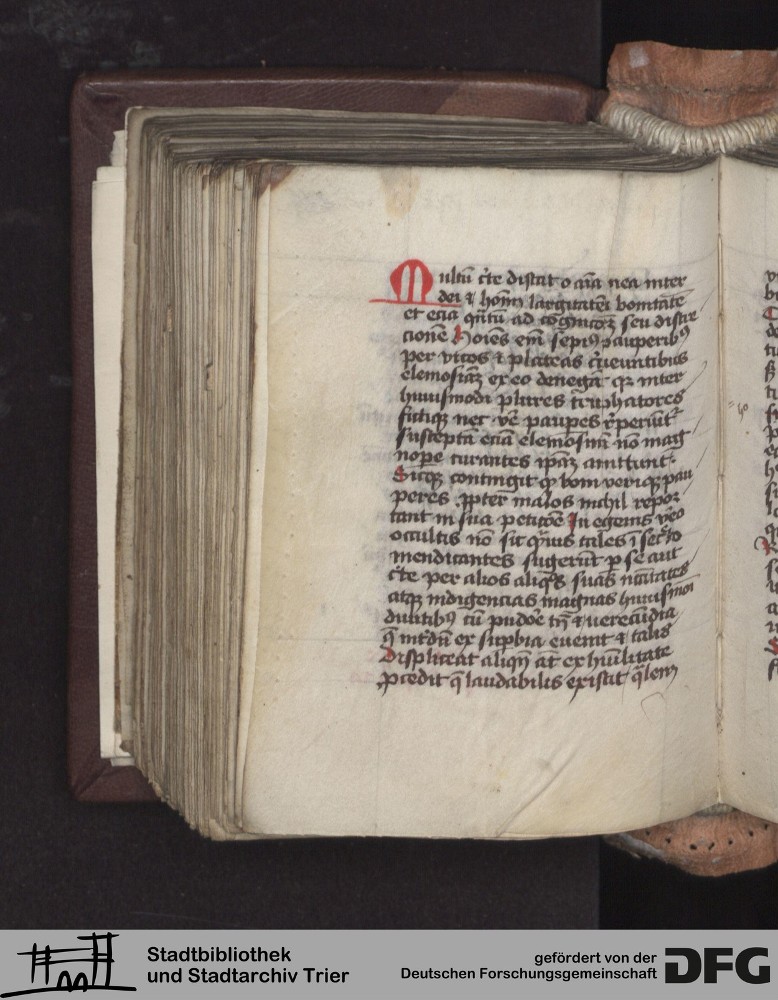 Multū c̄te distat o aīa mea inter
dei & hoīm largitatē bonitatē
et eciā q̄ntū ad cognicōꝫ seu distre
cionē hoīes em̄ sepiꝰ pauperibꝰ
per vicos & plateas c̄ueuntibus
elemosiāꝫ ex eo denegāt qꝛ inter
huiusmodi plures truphatores
fictiqꝫ nec vē paupes rꝑeriūt
susceptā eciā elemosinā nō mag
nope curantes ipāꝫ amittunt.
Sicqꝫ contingit ꝙ boni veriqꝫ pau
peres ꝓpter malos nichil repor
tant in sua peticōe In egenis vēo
occultis nō sit
mendicantes sugerūt ꝑ se aut
c̄te per alios aliqͥs suas
atqꝫ indigencias magnas huiusmōi
diuitibꝰ cū pudoē tn̄ & uerecūdia
q̄ int̄dū ex suꝑbia euenit & talis
displiceat aliqn̄ at ex hūilitate
ꝓcedit q̄ laudabilis existat q̄lem
Stadtbibliothek
und Stadtarchiv Trier
gefördert von der
Deutschen Forschungsgemeinschaft
DFG